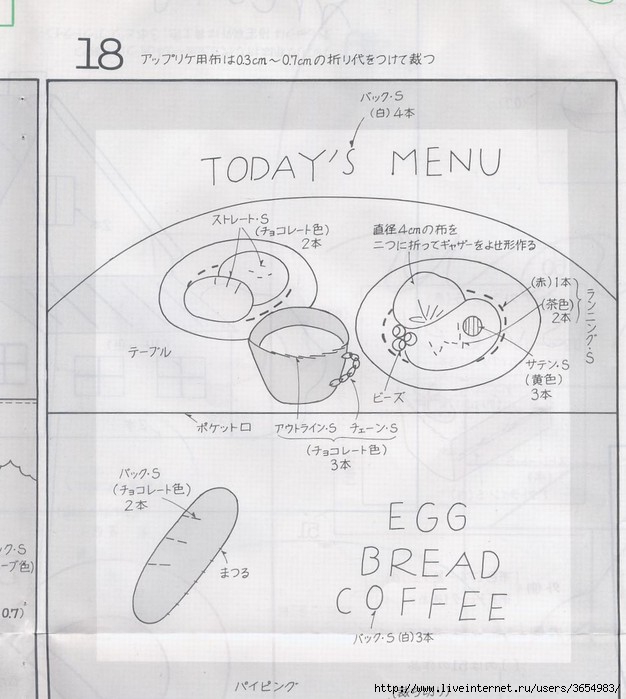 18 アップリケ用布は0.3cm～0.7cmの折り代をつけて裁つ
バック・S
(白)4本
TODAY'S MENU
ストレート・S
(チョコレート色)
2本
直径4cmの布を
二つに折ってギャザーをよせ形作る
(赤)1本
(茶色)
2本
ランニング・S
テーブル
サテン・S
(黄色)
3本
ビーズ
ポケット口
アウトライン・S チェーン・S
(チョコレート色)
3本
バック・S
(チョコレート色)
2本
まつる
EGG
BREAD
COFFEE
バック・S(白)3本
ック・S
ーブ色)
0.7)
パイピング
http://www.liveinternet.ru/users/3654983/